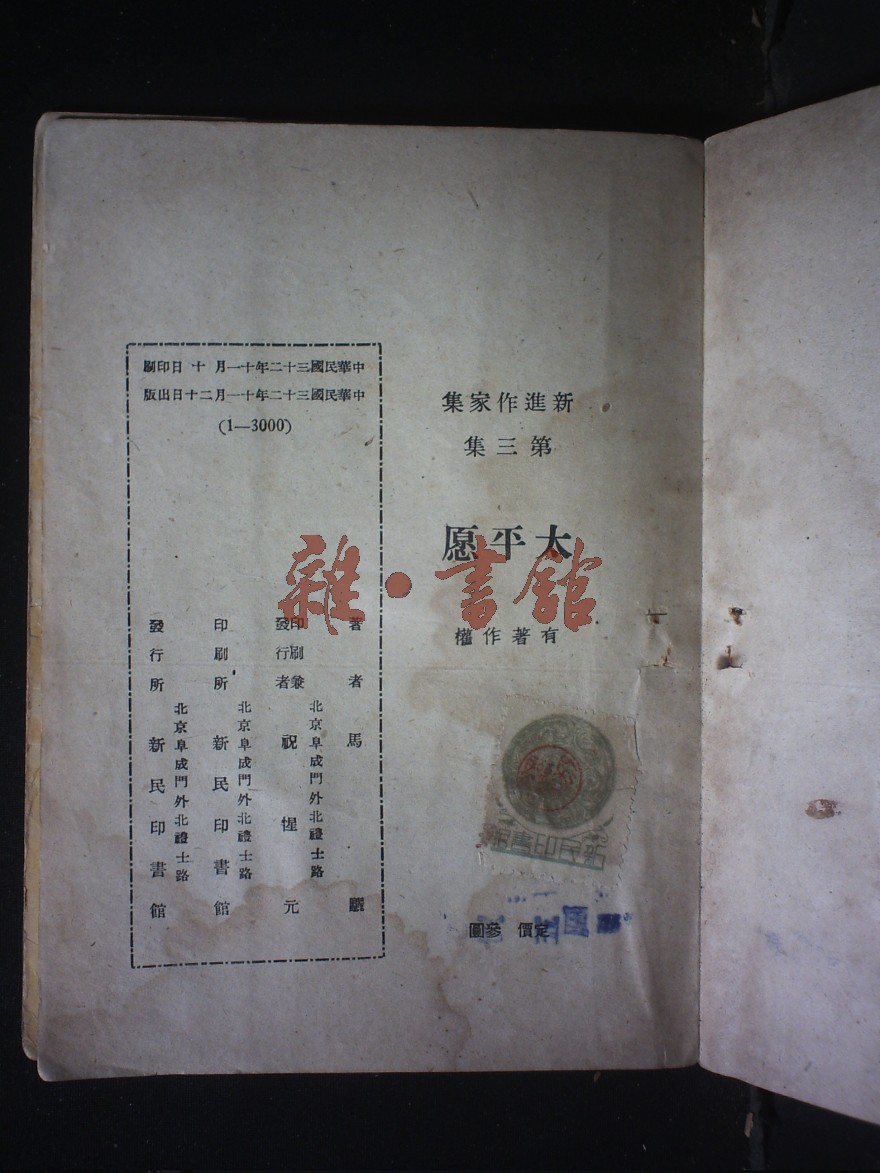 新進作家集
第三集
太平愿
有著作權
新民印書館
定價 參圓
中華民國三十二年十一月十日印刷
中華民國三十二年十一月二十日出版
(1—3000)
著者 馬驪
北京阜成門外北禮士路
印刷兼發行者 祝惺元
北京阜成門外北禮士路
印刷所 新民印書館
北京阜成門外北禮士路
發行所 新民印書館
雜·書館